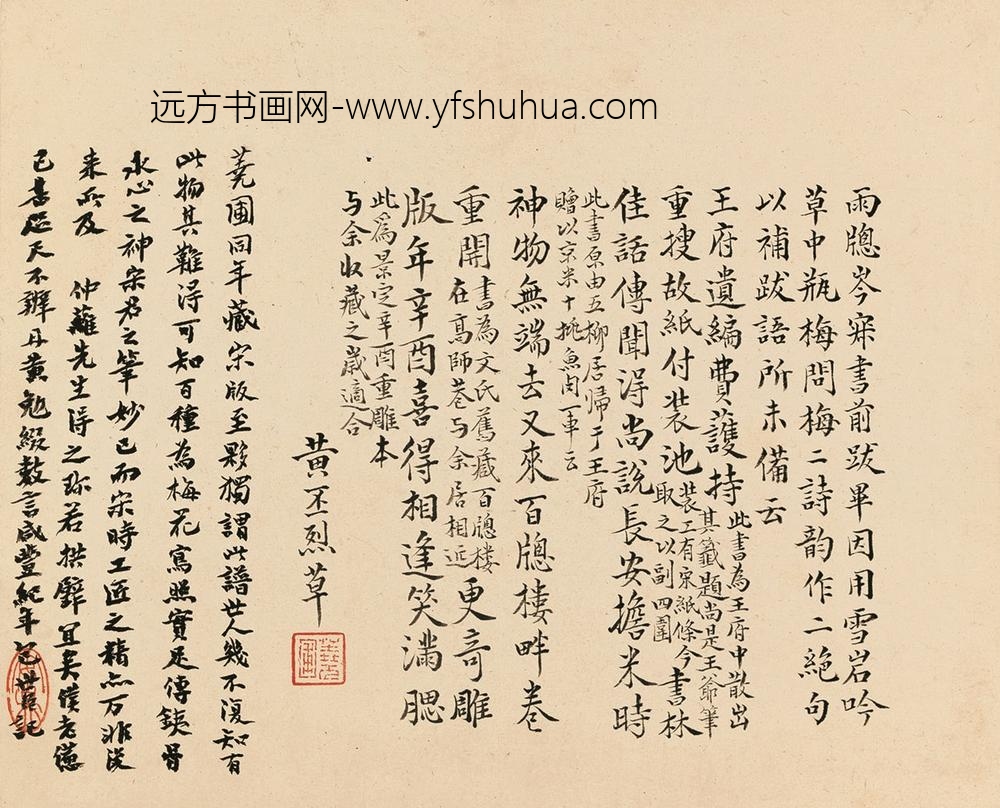 远方书画网-www.yfshuhua.com
雨牕岑寂書前跋畢因用雪岩吟
草中瓶梅問梅二詩韵作二絶句
以補跋語所未備云
王府遺編費護持此書為王府中散出
其籤題尚是王爺筆
書林
重搜故紙付裝池裝工有宋紙條今
取之以副四圍
佳話傳聞淂尚說長安擔米時
此書原由五柳居歸于王府
贈以京米十挑魚肉一車云
神物無端去又來百牕樓畔卷
重開書為文氏舊藏百牕樓
在髙師巷与余居相近
更竒雕
版年辛酉喜得相逢笑滿腮
此為景定辛酉重雕本
与余收藏之歲適合
黄丕烈草
蕘圃同年藏宋版至夥獨謂此譜世人幾不復知有
此物其難淂可知百種為梅花寫照實足傳銕骨
氷心之神宋君之筆妙已而宋時工匠之精点万非後
来所及 仲蘿先生淂之珎若拱璧宜矣僕老憊
已甚咫尺不辨丹黄勉綴数言咸豐紀年包世臣記